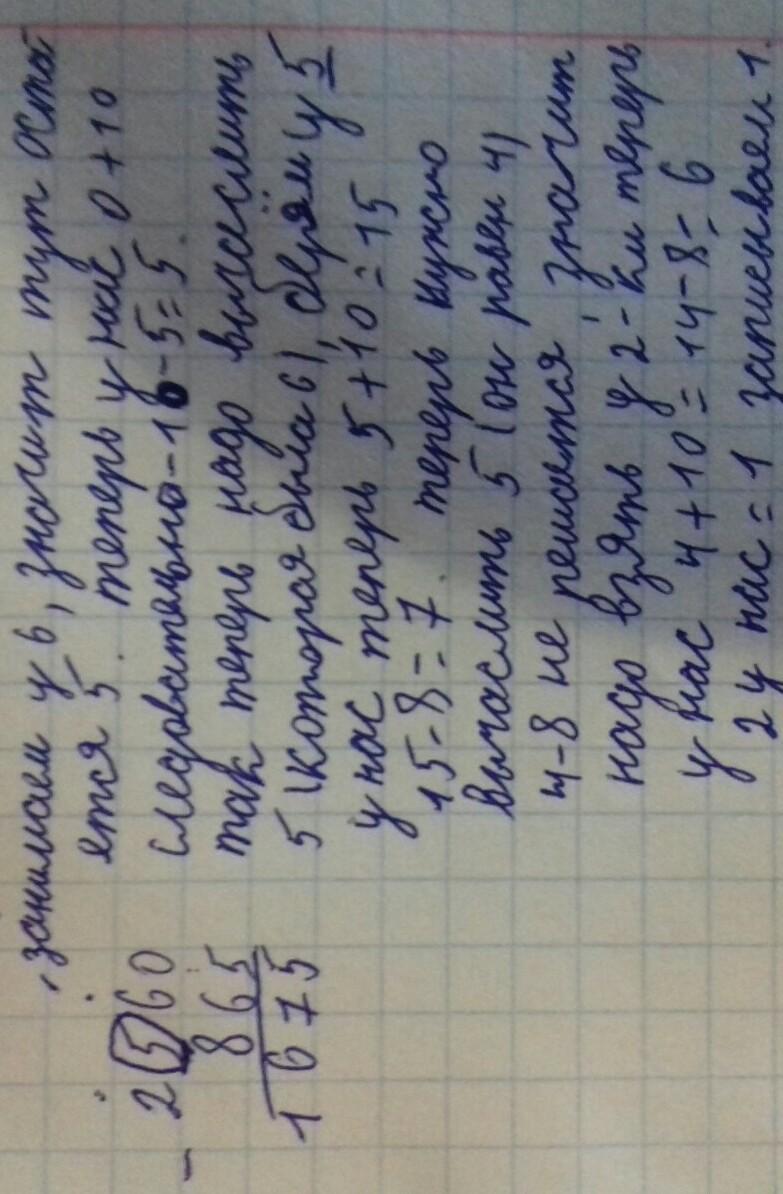 - 2560
865
1675
занимаем у 6, значит тут оста
ется 5. теперь у нас 0+10
следовательно-10-5=5.
так теперь надо вычеслить
5 (которая была 6), берём у 5
у нас теперь 5+10=15
15-8=7. теперь нужно
вычаслить 5 (он равен 4)
4-8 не решается значит
надо взять у 2-ки теперь
у нас 4+10=14-8=6
2 у нас =1 записываем 1.